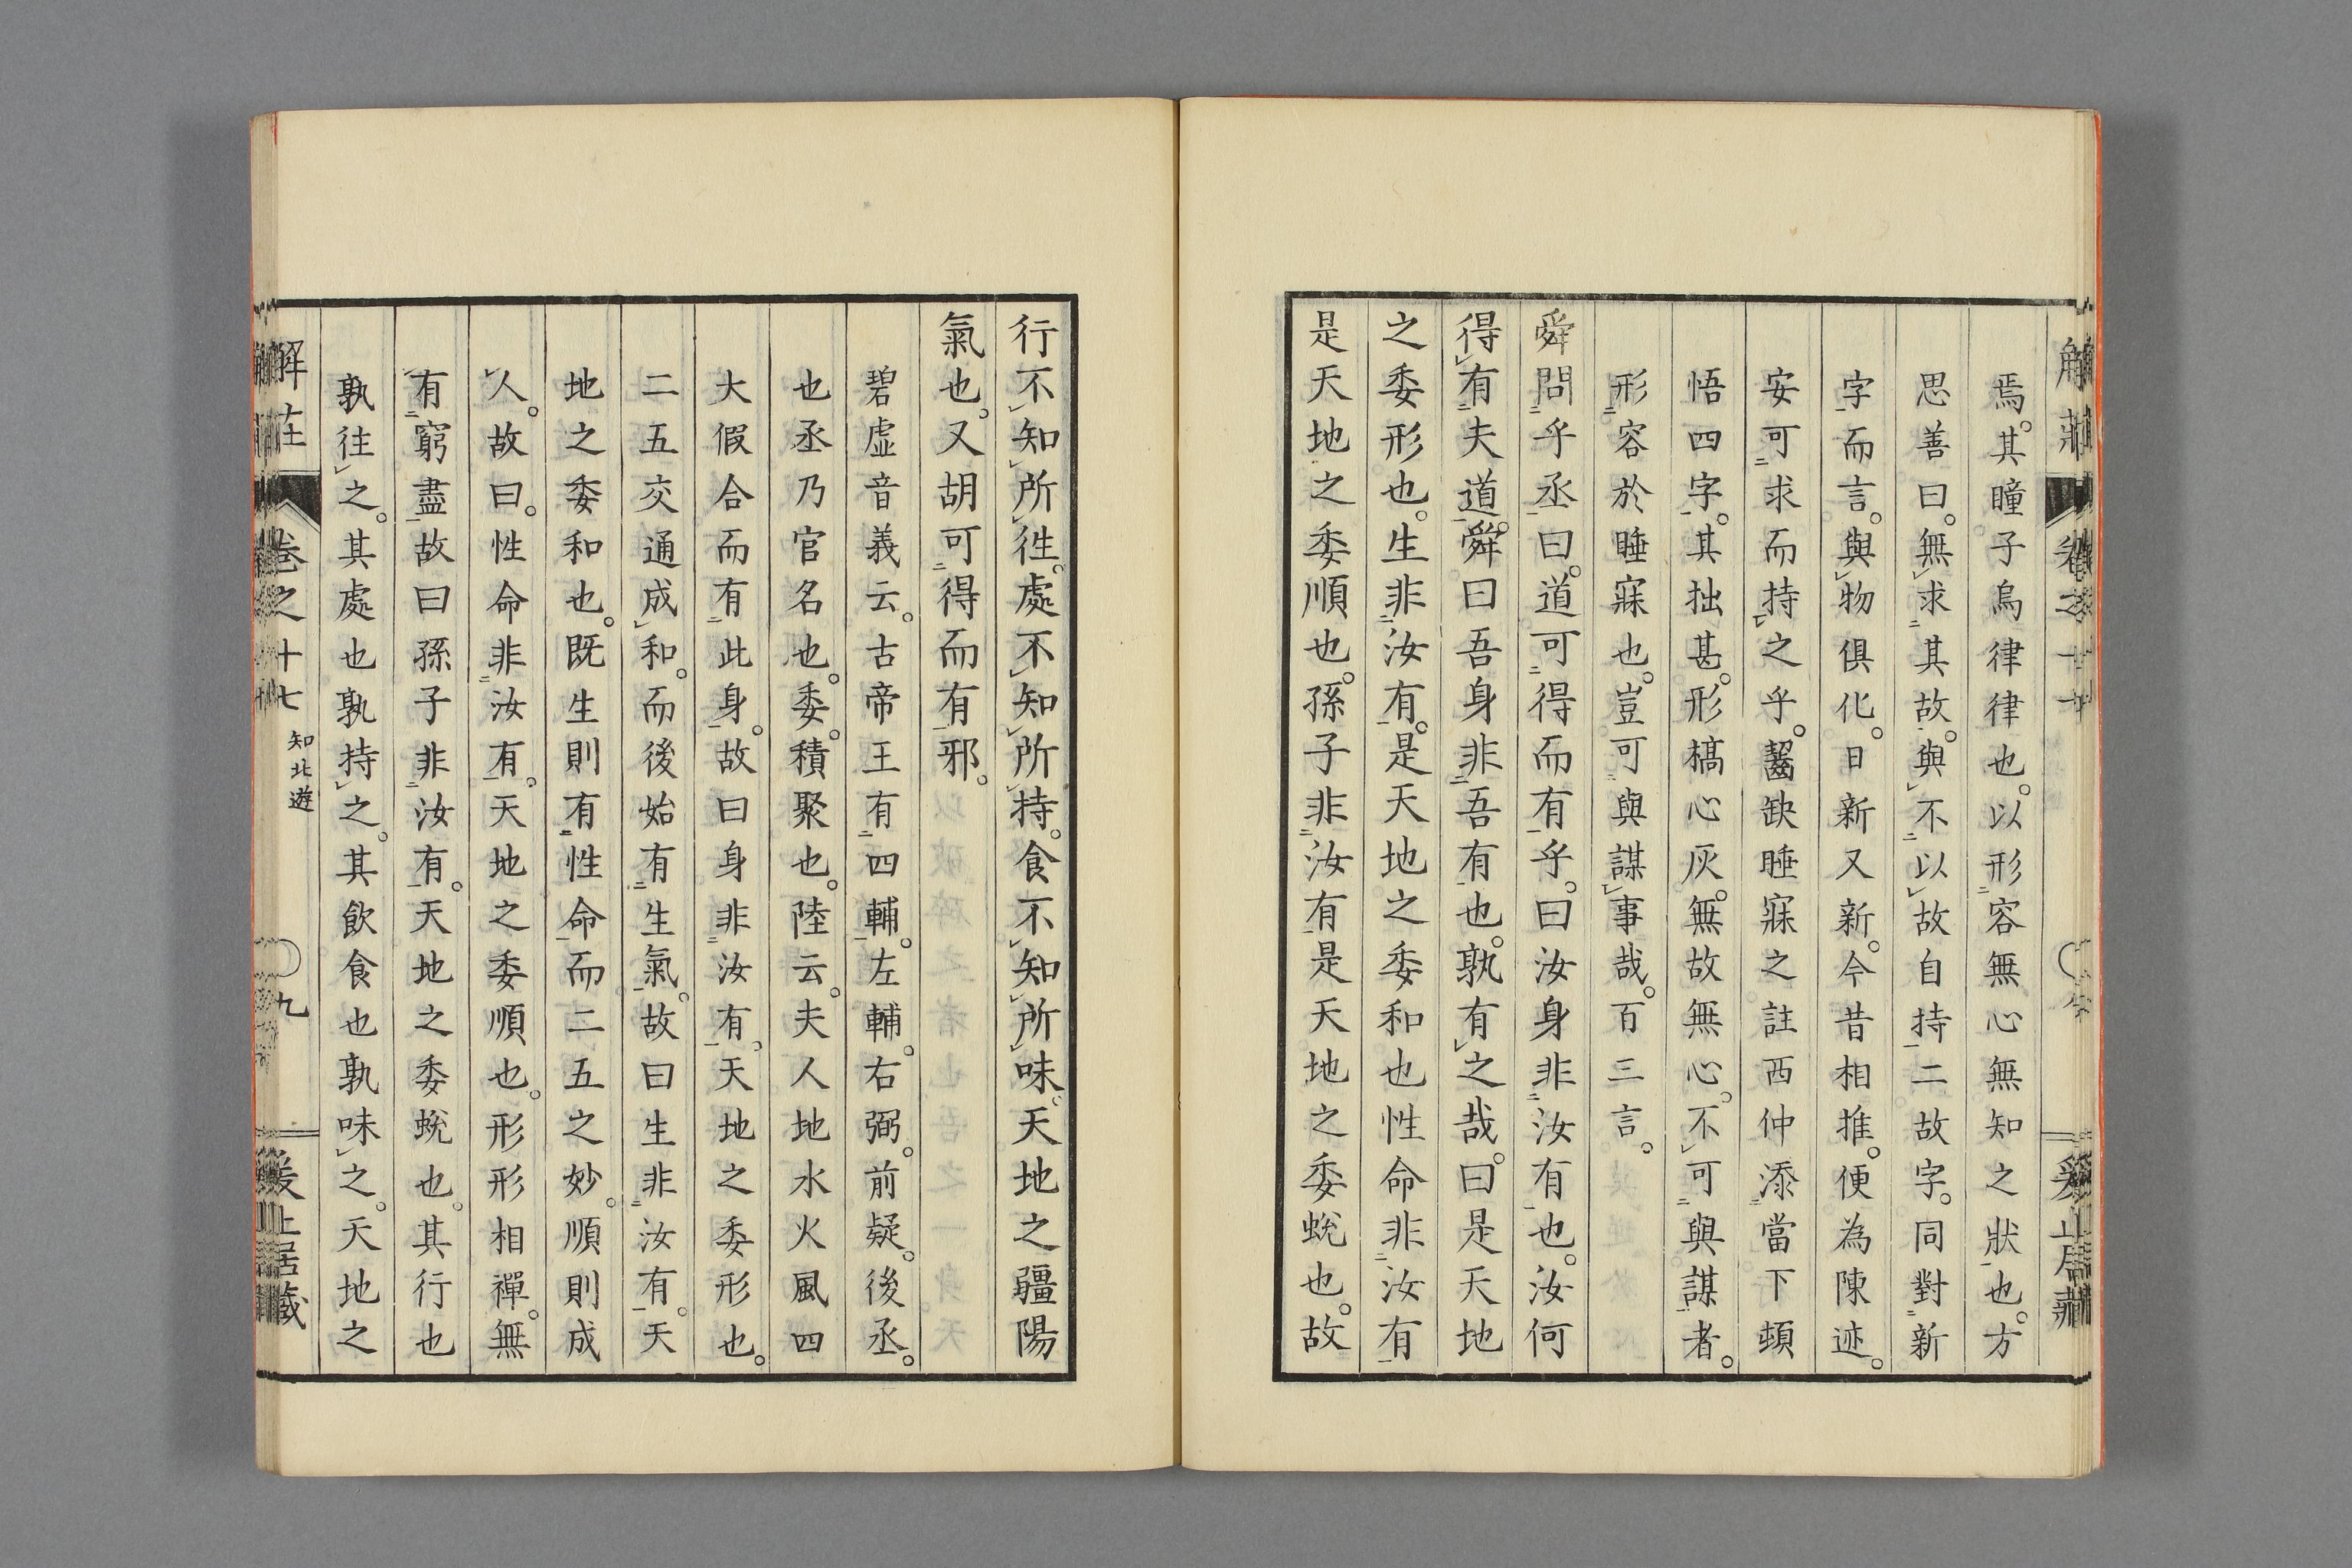 焉。其瞳子烏律律也。以形容無心無知之狀也。方
思善曰。無求其故。與不以故自持二故字。同對新
字而言。與物俱化。日新又新。今昔相推。便為陳迹。
安可求而持之乎。齧缺睡寐之註西仲添當下頓
悟四字。其拙甚。形槁心灰。無故無心。不可與謀者。
形容於睡寐也。豈可與謀事哉。百三言。
舜問乎丞曰。道可得而有乎。曰汝身非汝有也。汝何
得有夫道。舜曰吾身非吾有也。孰有之哉。曰是天地
之委形也。生非汝有。是天地之委和也性命非汝有
是天地之委順也。孫子非汝有是天地之委蛻也。故
行不知所徃。處不知所持。食不知所味。天地之疆陽
氣也。又胡可得而有邪。
碧虛音義云。古帝王有四輔。左輔。右弼。前疑。後丞。
也丞乃官名也。委。積聚也。陸云。夫人地水火風四
大假合而有此身。故曰身非汝有。天地之委形也。
二五交通成和。而後始有生氣。故曰生非汝有。天
地之委和也。既生則有性命而二五之妙。順則成
人。故曰。性命非汝有。天地之委順也。形形相禪。無
有窮盡故曰孫子非汝有。天地之委蛻也。其行也
孰往之。其處也孰持之。其飲食也孰味之。天地之
卷之十七
知北遊
九